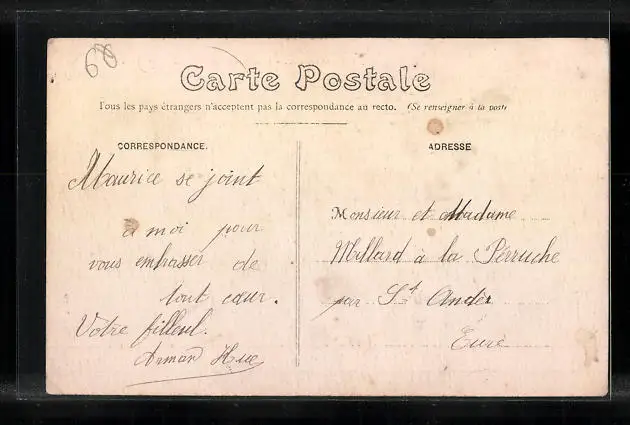 60
Carte Postale
Tous les pays étrangers n'acceptent pas la correspondance au recto. (Se renseigner à la poste
CORRESPONDANCE.
Maurice se joint
à moi pour
vous embrasser de
tout cœur.
Votre filleul.
Arman Hue
ADRESSE
Monsieur et Madame
Millard à la Perruche
par St Andér
Eure